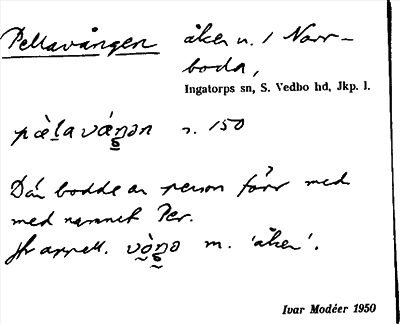 Pellavången åker n. i Norr-
boda,
Ingatorps sn, S. Vedbo hd, Jkp. l.
pæ̀laváŋən s. 150
Där bodde en person förr med
med namnet Per.
Jfr appell. vòŋə m. 'åker'.
Ivar Modéer 1950